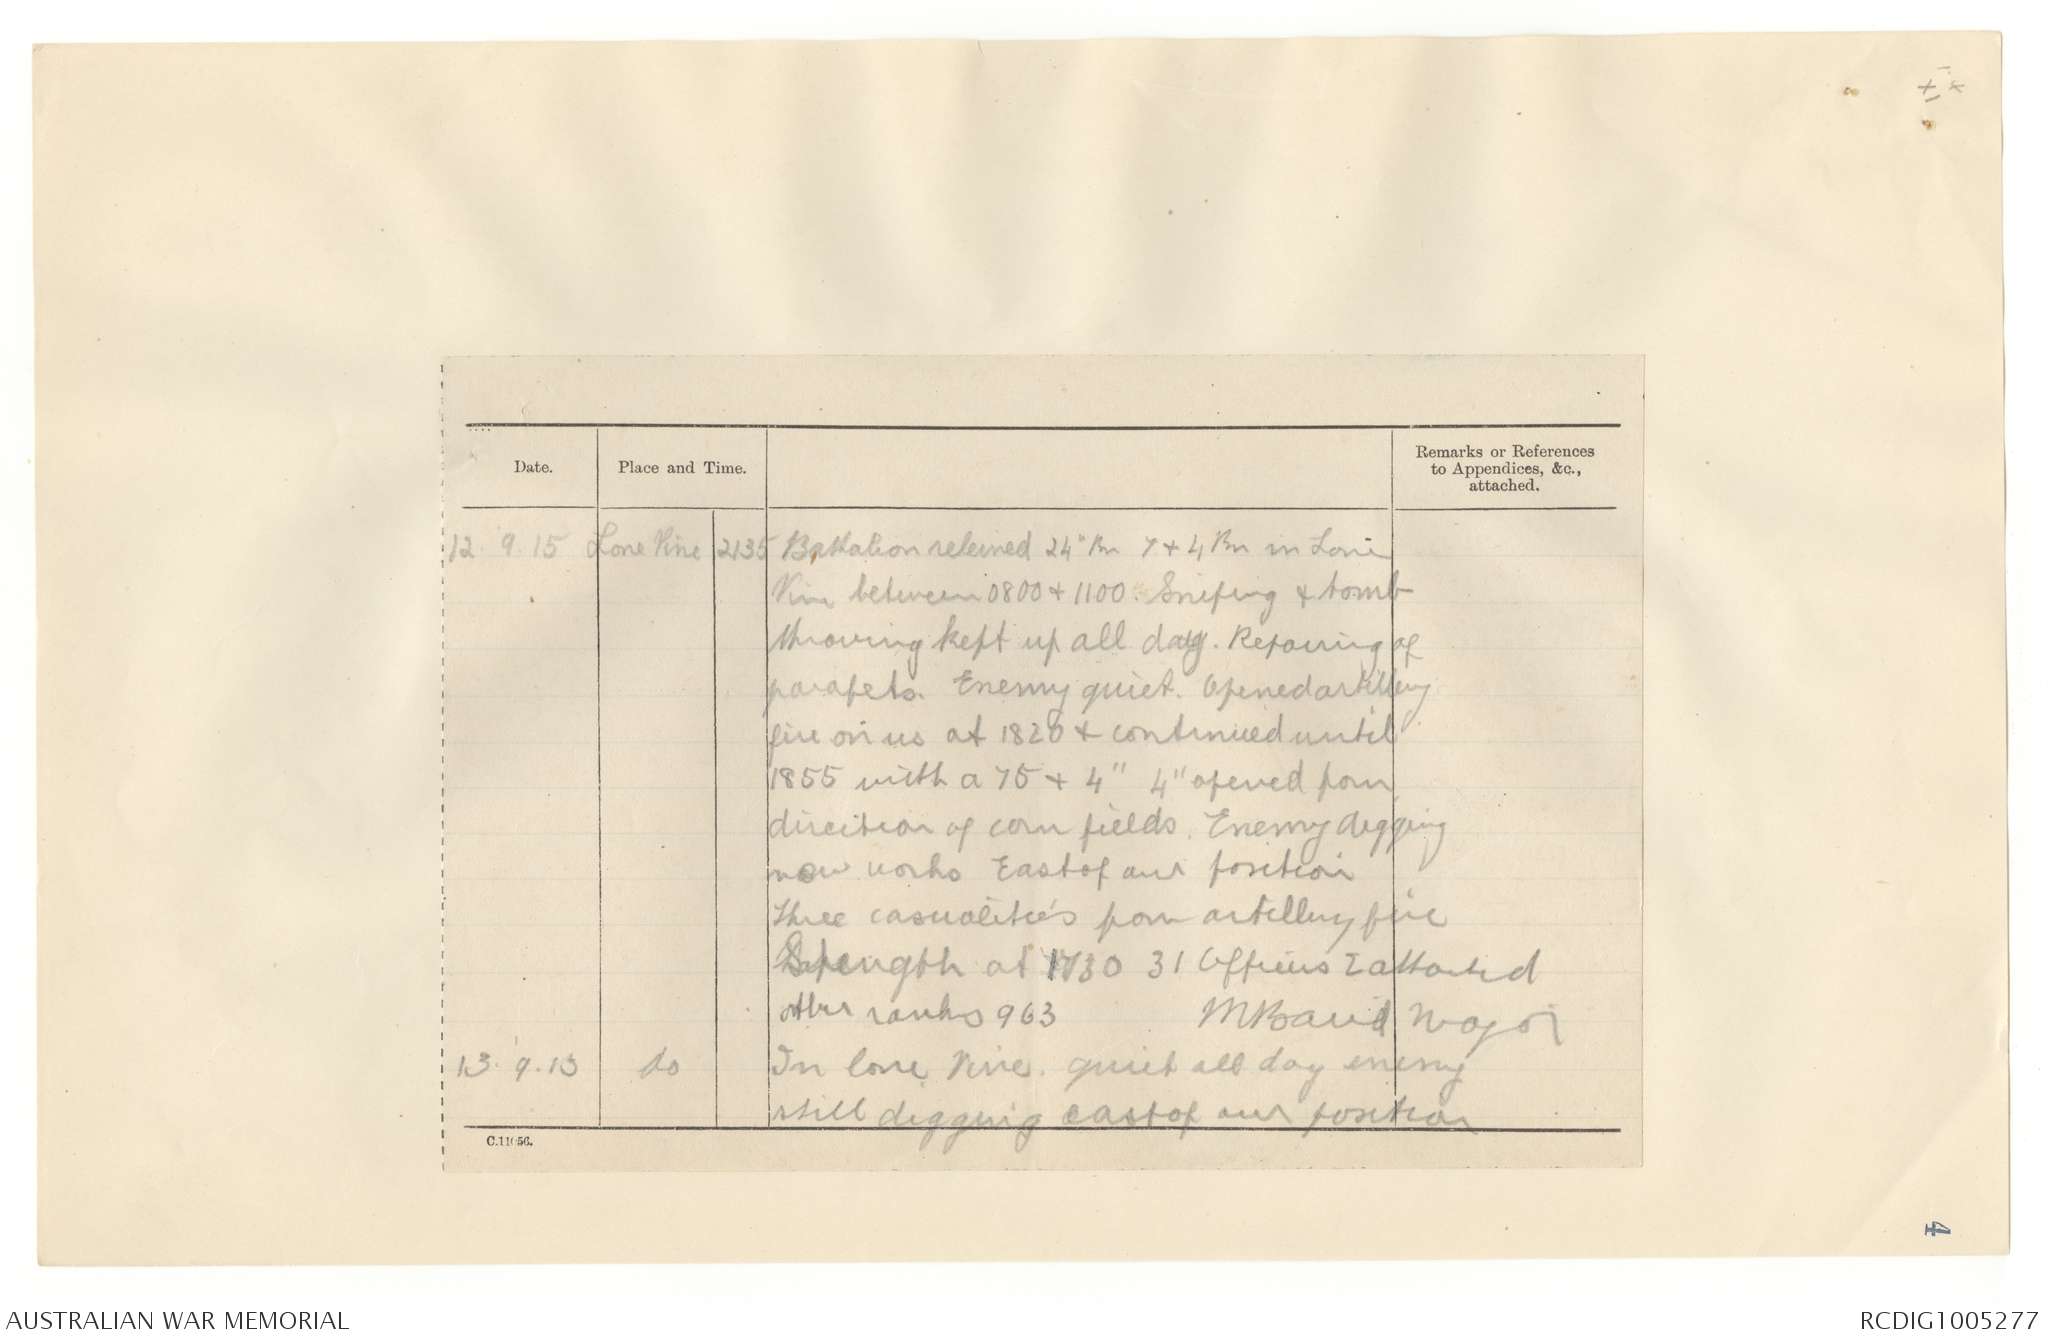 Date.
Place and Time.
Remarks or References
to Appendices, &c.,
attached.
12. 9. 15 Lone Pine 2135 Battalion releived 24" Bn 7 + 4 Bn in Lone
Pine between 0800 + 1100. Sniping & bomb
throwing kept up all day. Repairing of
parapets. Enemy quiet. Opened artillery
fire on us at 1820 + continued until
1855 with a 75 + 4" 4" opened from
direction of corn fields. Enemy digging
new works East of our position
three casualities from artillery fire
Strength at 1730 31 Officers 2 attached
other ranks 963 Major
13. 9. 15 do In lone Pine. quiet all day enemy
still digging east of our position
C.11056.
4
AUSTRALIAN WAR MEMORIAL
RCDIG1005277